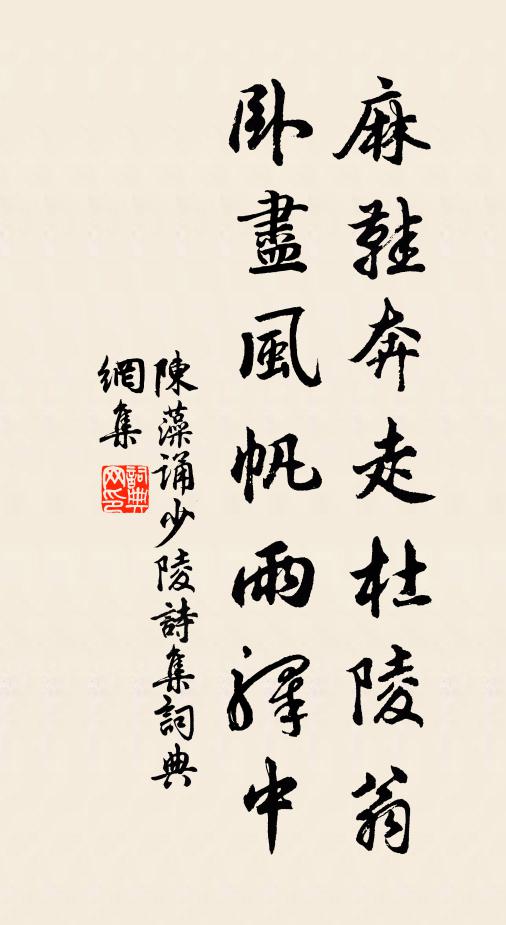 麻鞋奔走杜陵翁
臥盡風帆雨驛中
陳藻誦少陵詩集詞典
網集
詞典
网印